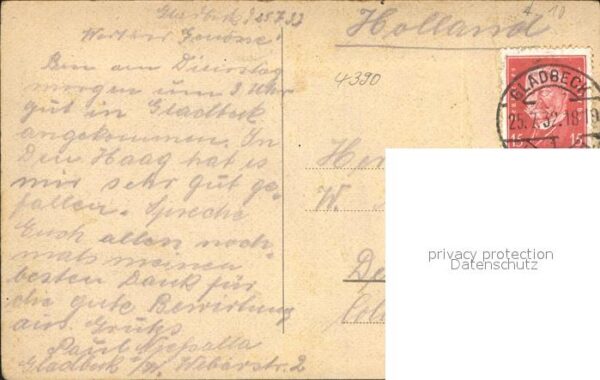 Gladbeck, 25.7.32
Werther Genosse!
Bin am Dienstag
morgen um 9 Uhr
gut in Gladbeck
angekommen. In
Den Haag hat es
mir sehr gut ge-
fallen. Spreche
Euch allen noch-
mals meinen
besten Dank für
die gute Bewirtung
aus. Gruß
Paul
Gladbeck i/W. Weberstr. 2
Holland
4390
GLADBECK
25.7.32.18-19
15 15
W.
privacy protection
Datenschutz